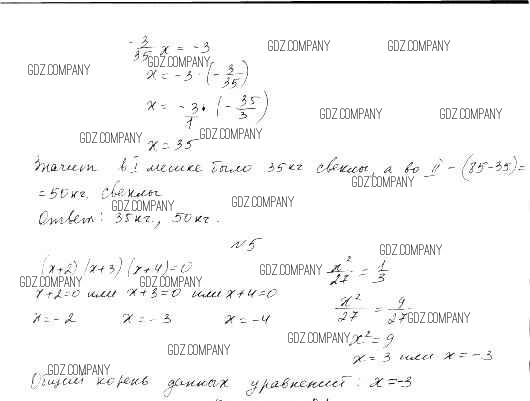 -3/35 x = -3
GDZ.COMPANY GDZ.COMPANY
GDZ.COMPANY GDZ.COMPANY
x = -3 · (-3/35)
x = -3/1 · (-35/3)
GDZ.COMPANY GDZ.COMPANY
GDZ.COMPANY GDZ.COMPANY
x = 35
Значит в I мешке было 35 кг свеклы, а во II - (85-35)=
GDZ.COMPANY
= 50 кг. свеклы
GDZ.COMPANY GDZ.COMPANY
Ответ: 35 кг., 50 кг.
N 5
GDZ.COMPANY
(x+2)(x+3)(x+4)=0 GDZ.COMPANY x²/27 = 1/3
GDZ.COMPANY GDZ.COMPANY
x+2=0 или x+3=0 или x+4=0
x²/27 = 9/27
x = -2 x = -3 x = -4 GDZ.COMPANY
GDZ.COMPANY x² = 9
GDZ.COMPANY x = 3 или x = -3
GDZ.COMPANY
Общий корень данных уравнений: x = -3